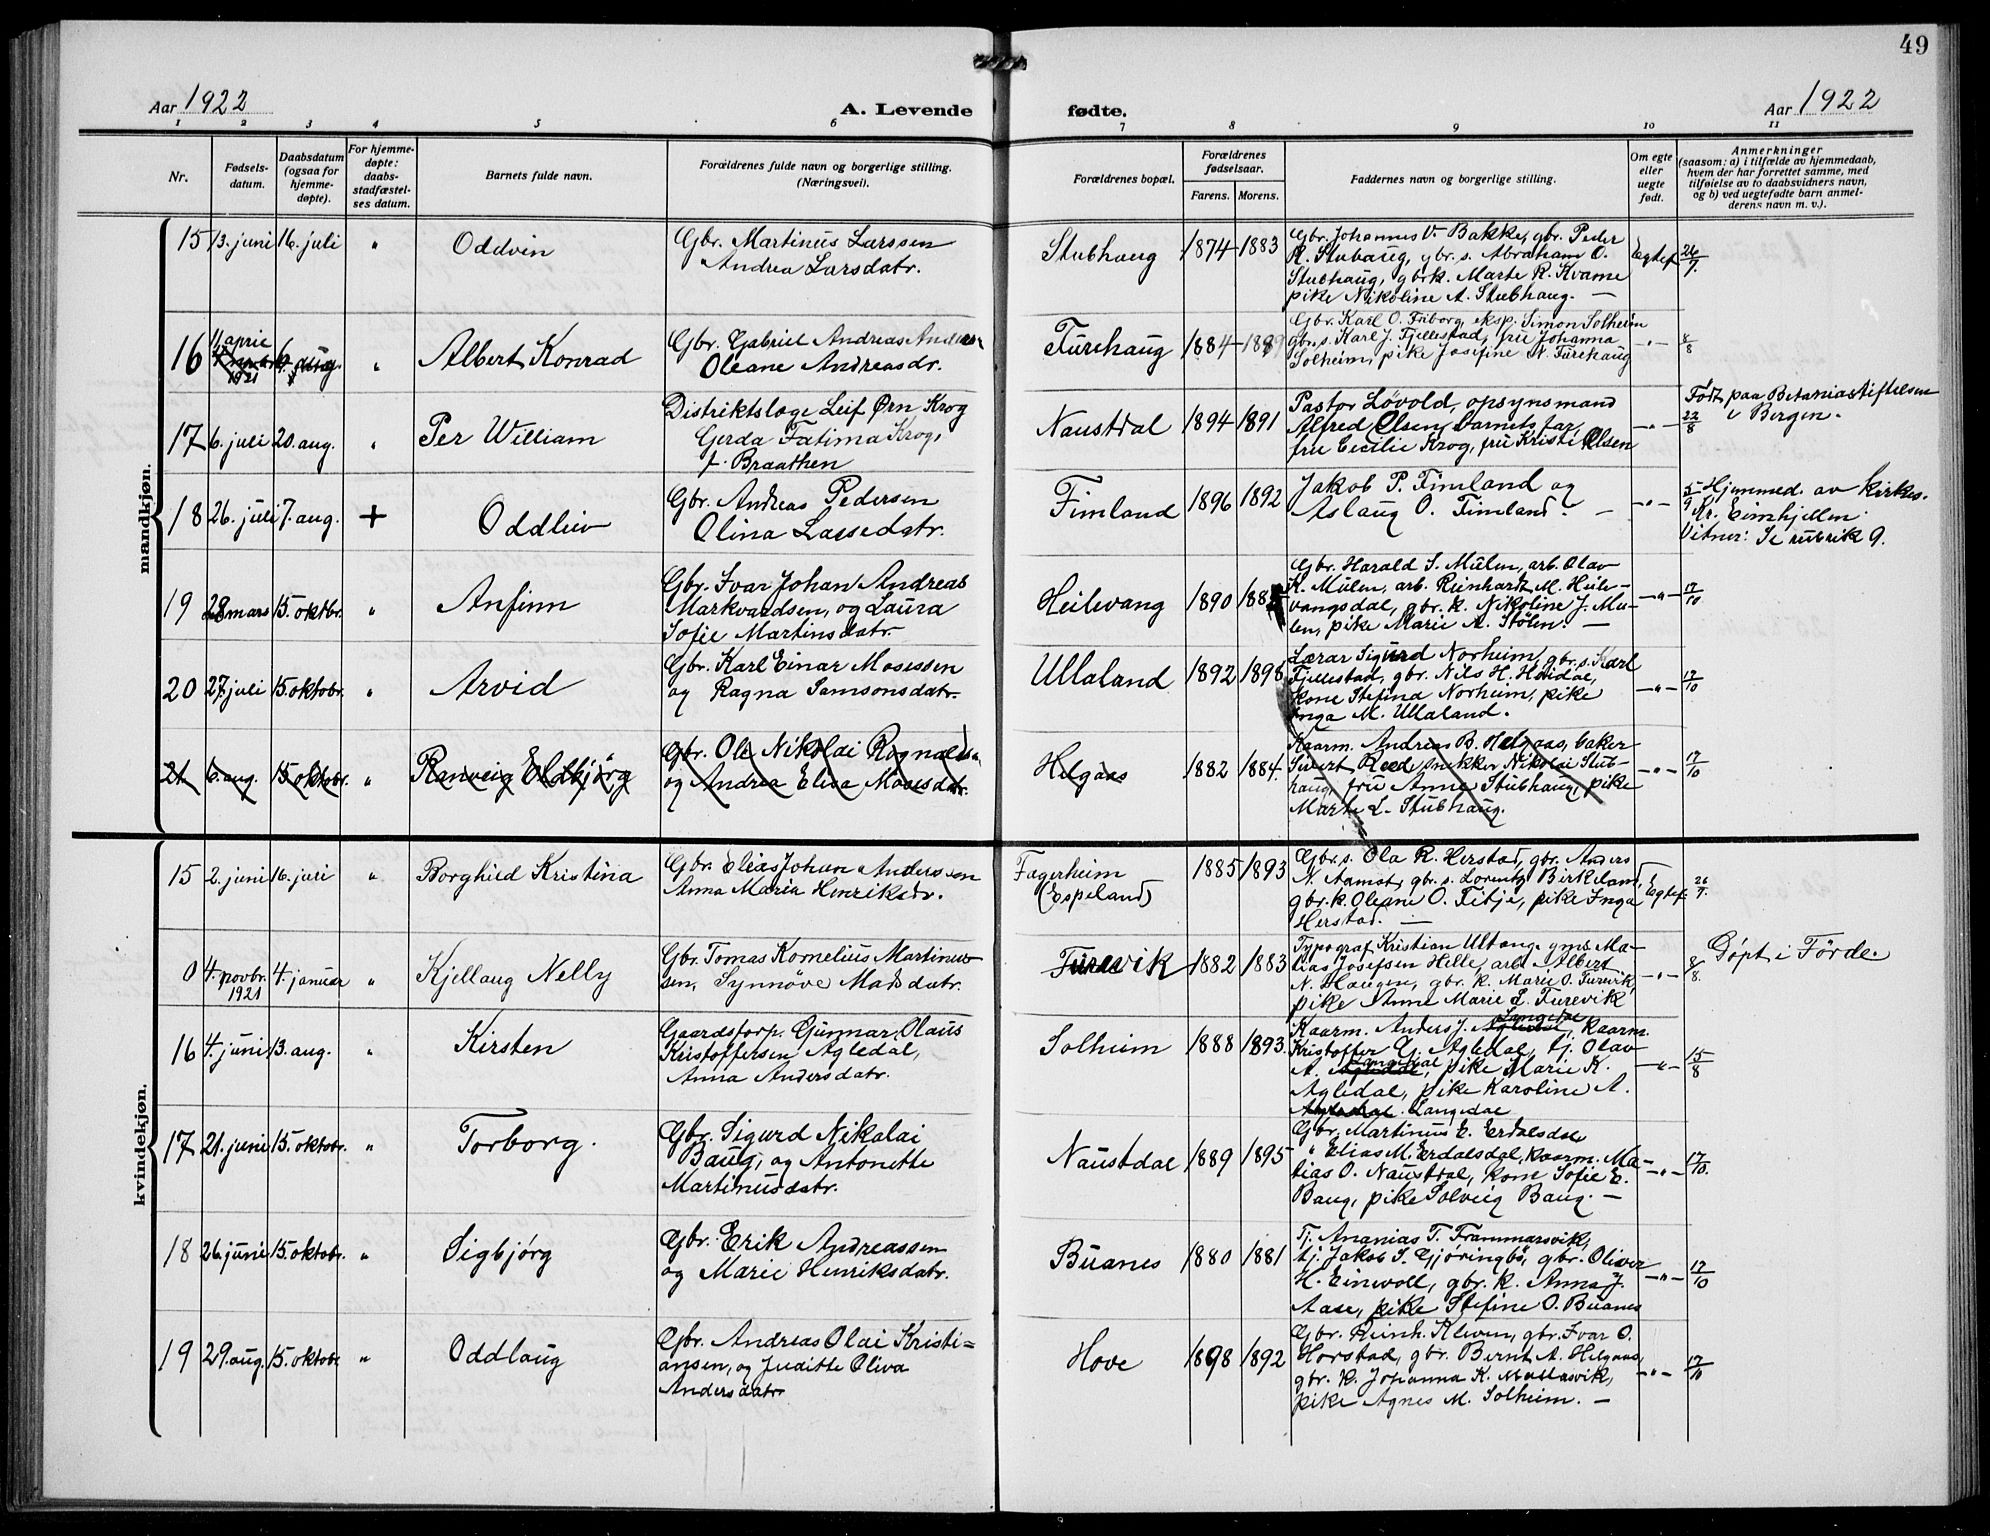 49
Aar 1922
A. Levende fødte.
Aar 1922
1 2 3 4 5 6 7 8 9 10 11
Nr.
Fødsels-
datum.
Daabsdatum
(ogsaa for
hjemme-
døpte).
For hjemme-
døpte:
daabs-
stadfæstel-
ses datum.
Barnets fulde navn.
Forældrenes fulde navn og borgerlige stilling.
(Næringsvei).
Forældrenes bopæl.
Forældrenes
fødselsaar.
Farens. Morens.
Faddernes navn og borgerlige stilling.
Om egte
eller
uegte
født.
Anmerkninger
(saasom: a) i tilfælde av hjemmedaab,
hvem der har forrettet samme, med
tilføielse av to daabsvidners navn,
og b) ved uegtefødte barn anmel-
derens navn m. v.).
mandkjøn.
15 13. juni 16. juli " Oddvin
Gbr. Martinus Larssen
Andrea Larsdatr.
Stubhaug 1874 1883
Gbr. Johannes V. Bakke, gbr. Peder
R. Stubaug, gbr. s. Abraham O.
Stubhaug, gbrk. Marte R. Kvame
pike Nikoline A. Stubhaug. —
Egtef. 26/7.
16 11 april
1921 6. aug. " Albert Konrad
Gbr. Gabriel Andreas Anders
Oleane Andreasdr.
Furehaug 1884 1889
Gbr. Karl O. Friborg, eksp. Simon Solheim
gbr. s. Karl J. Fjellestad, fru Johanna
Solheim, pike Josefine N. Furehaug
—"— 8/8
17 6. juli 20. aug. " Per William
Distriktslæge Leif Ørn Krog
Gerda Fatima Krog,
f. Braathen
Naustdal 1894 1891
Pastor Løvold, opsynsmand
Alfred Olsen, barnets far,
fru Cecilie Krog, fru Kristi Olsen
—"— 22/8
Født paa Betaniastiftelsen
i Bergen.
18 26. juli 7. aug. + Oddleiv
Gbr. Andreas Pedersen
Olina Lassedatr.
Fimland 1896 1892
Jakob P. Fimland og
Aslaug O. Fimland. —
—"— 5/9
Hjemmed. av kirkes.
Kr. Eimhjellen.
Vitner: Se rubrik 9.
19 28 mars 15. oktbr. " Anfinn
Gbr. Ivar Johan Andreas
Markvardsen, og Laura
Sofie Martinsdatr.
Heilevang 1890
Gbr. Harald S. Mulen, arb. Olav
K. Mulen, arb. Reinhardt M. Heile-
vangsdal, gbr. k. Nikoline J. Mu-
len, pike Marie A. Stølen. —
—"— 17/10
20 27 juli 15. oktobr. " Arvid
Gbr. Karl Einar Mosessen
og Ragna Samsonsdatr.
Ullaland 1892 1898
Lærar Sigurd Norheim, gbr. s. Karl
Fjellestad, gbr. Nils H. Heidal,
kone Stefina Norheim, pike
Inga M. Ullaland.
—"— 17/10
21 6. aug. 15 oktobr. " Ranveig Eldbjørg
Gbr. Ole Nikolai Rognalds.
og Andrea Elisa Mosesdatr.
Helgaas 1882 1884
Kaarm. Andreas B. Helgaas, baker
Sivert Reed, snekker Nikolai Stub-
haug, fru Anne Stubhaug, pike
Marte L. Stubhaug.
—"— 17/10
kvindekjøn.
15 2. juni 16. juli " Borghild Kristina
Gbr. Elias Johan Anderssen
Anna Maria Henriksdr.
Fagerheim
(Espeland)
1885 1893
Gbr. s. Ola R. Herstad, gbr. Anders
N. Aamot, gbr. s. Lorentz Birkeland,
gbr. k. Oleane O. Tibje, pike Inga
Herstad. —
Egtef. 26/7.
0 4. novbr.
1921 4. januar " Kjellaug Nelly
Gbr. Tomas Kornelius Martinus-
sen, Synnøve Madsdatr.
Furevik 1882 1883
Typograf Kristian Ultang, gms. Ma-
tias Josefsen Helle, arb. Albert
N. Haugen, gbr. k. Marie O. Furevik,
pike Anne Marie L. Furevik
—"— 8/8.
Døpt i Førde.
16 4. juni 13. aug. " Kirsten
Gaardsforp. Gunnar Olaus
Kristoffersen Agledal,
Anna Andersdatr.
Solheim 1888 1893.
Kaarm. Anders J. Agledal, Langedal kaarm.
Kristoffer G. Agledal, tj. Olav
A. Agledal, Langedal pike Marie K.
Agledal, pike Karoline A.
Agledal. Langedal
—"— 15/8
17 21. juni 15. oktobr. " Torborg.
Gbr. Sigurd Nikolai
Baug, og Antonette
Martinusdatr.
Naustdal 1889 1895
Gbr. Martinus E. Erdalsdal
" Elias M. Erdalsdal, kaarm. Ma-
tias O. Naustdal, kone Sofie E.
Baug, pike Solveig Baug. —
—"— 17/10.
18 26. juni 15. oktobr. " Sigbjørg
Gbr. Erik Andreassen
og Marie Henriksdatr.
Buanes 1880 1881
Tj. Ananias T. Frammarsvik,
tj. Jakob S. Gjøringbø, gbr. Oliver
H. Einevoll, gbr. k. Anna J.
Aase, pike Stefine O. Buanes
—"— 17/10
19 29. aug. 15. oktobr " Oddlaug
Gbr. Andreas Olai Kristi-
ansen, og Juditte Oliva
Andersdatr
Hove 1898 1892
Gbr. Reinh. Kleven, gbr. Ivar O.
Horstad, gbr. Bernt A. Helgaas,
gbr. k. Johanna K. Mallasvik,
pike Agnes M. Solheim. —
—"— 17/10